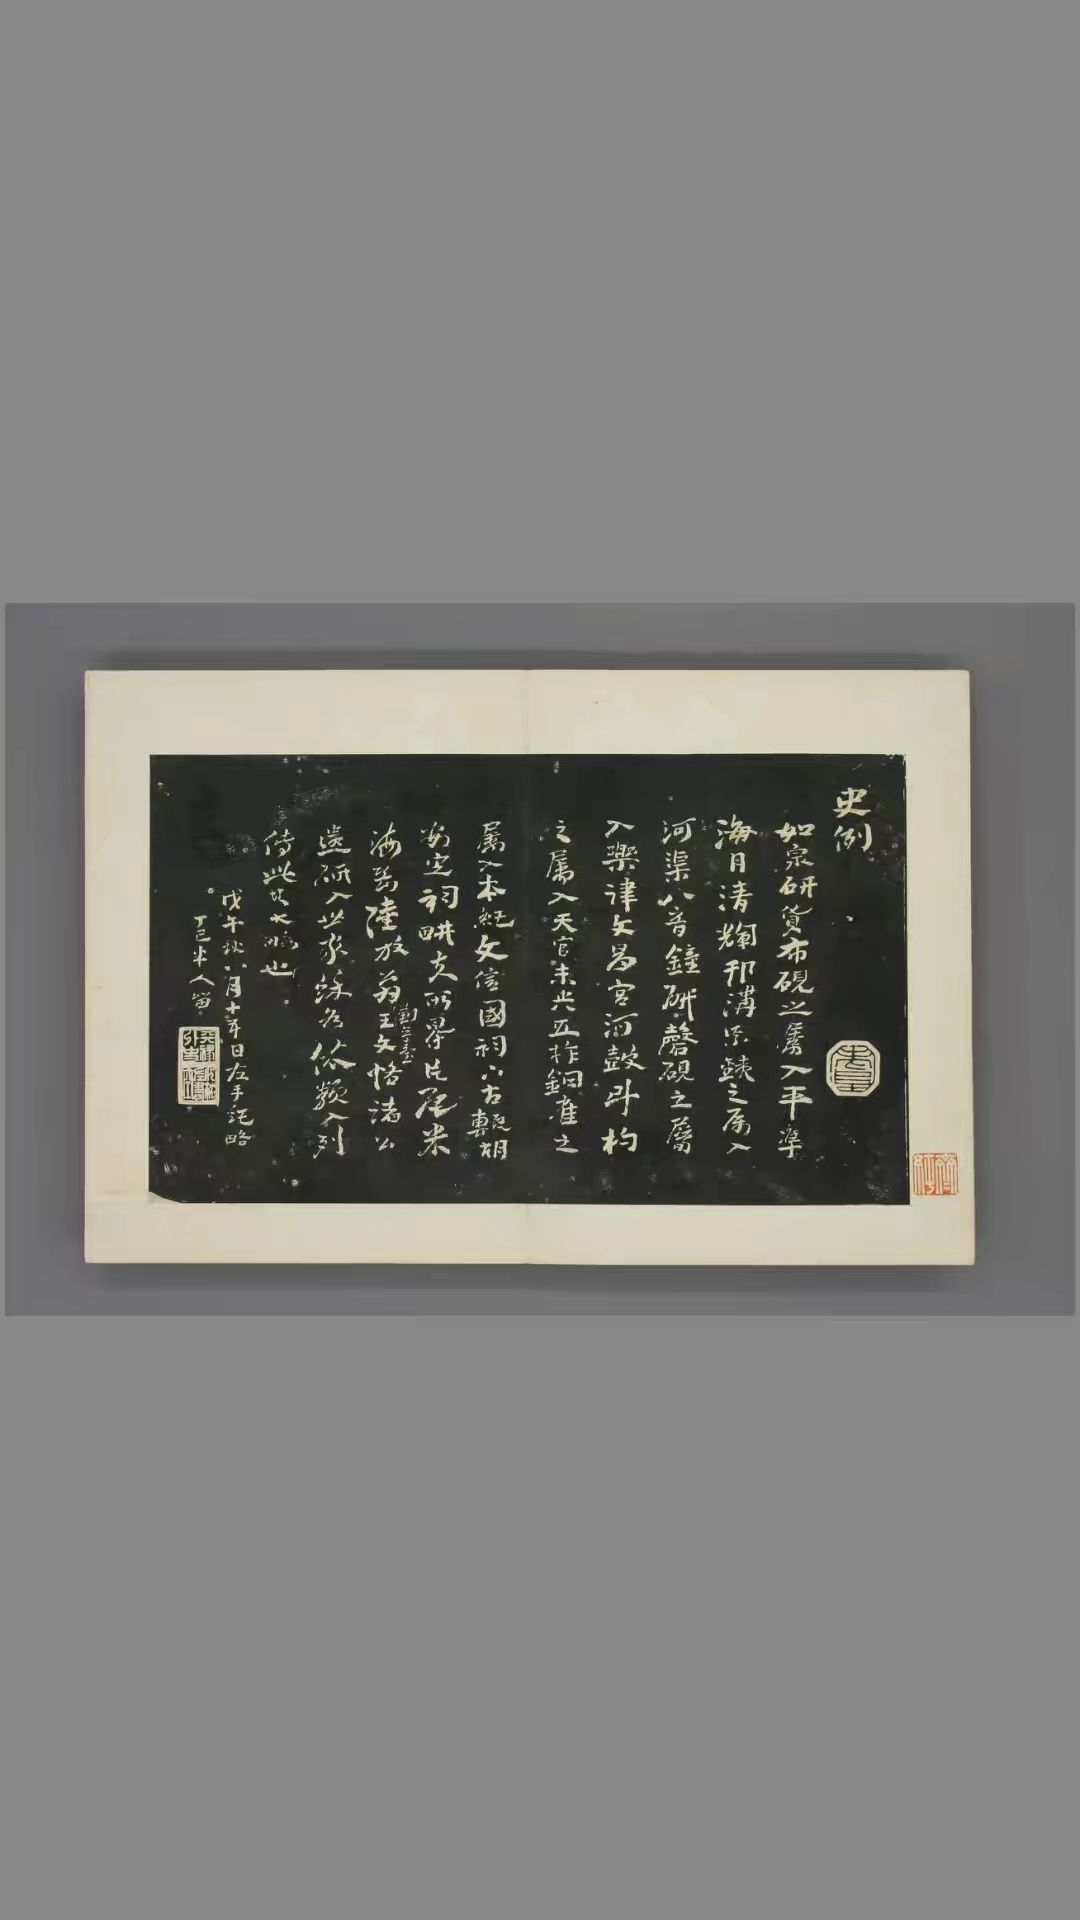 史例
如泉研貨布硯之屬入平準
海月清輝邗溝
之屬入
河渠八音鐘研磬硯之屬
入樂律文昌宮河鼓斗杓
之屬入天官未央瓦柞銅雀之
屬入本紀文信國祠八古甎胡
安定祠畊夫所
瓦
米
海岳陸放翁王文恪諸公
遺研入世家
各依類入列
傳此其大
也
戊午秋八月十
日左手
略
丁巳半人